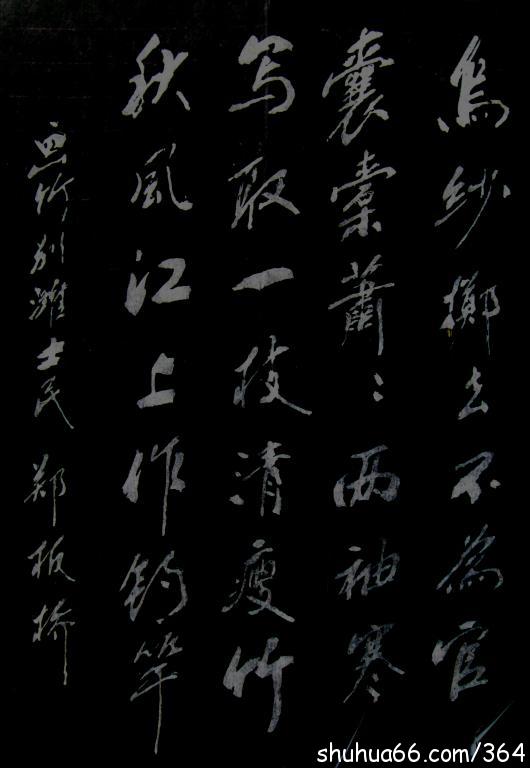 烏纱擲去不為官
囊橐蕭〻两袖寒
写取一枝清瘦竹
秋風江上作釣竿
画竹别濰士民 郑板桥
shuhua66.com/364